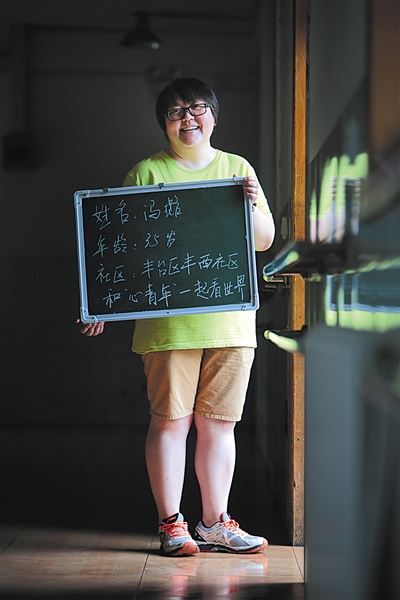 姓名：冯璐
年龄：35岁
社区：丰台区丰西社区
和“心青年”一起看世界